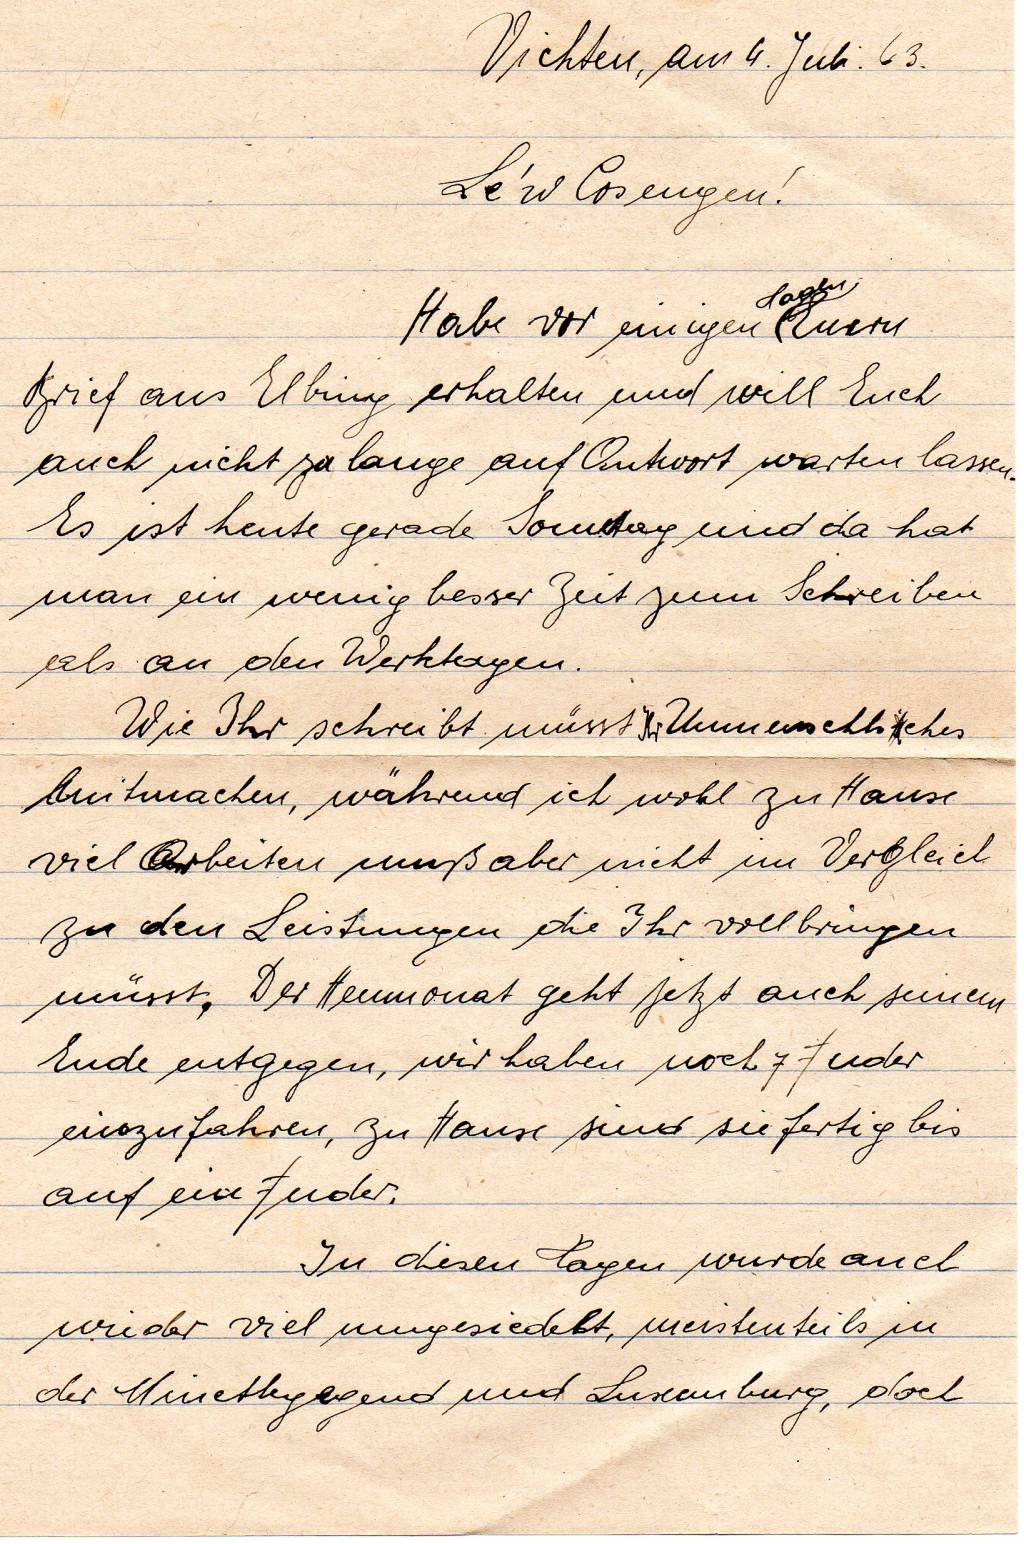 Vichten, am 4. Juli. 43.
Le'w Cosengen!
Habe vor einigen Tagen Euern
Brief aus Elbing erhalten und will Euch
auch nicht zu lange auf Antwort warten lassen.
Es ist heute gerade Sonntag und da hat
man ein wenig besser Zeit zum Schreiben
als an den Werktagen.
Wie Ihr schreibt müsst Ihr Unmenschliches
mitmachen, während ich wohl zu Hause
viel Arbeiten muß aber nicht im Vergleich
zu den Leistungen die Ihr vollbringen
müsst. Der Heumonat geht jetzt auch seinem
Ende entgegen, wir haben noch 7 Fuder
einzufahren, zu Hause sind sie fertig bis
auf ein Fuder.
In diesen Tagen wurde auch
wieder viel umgesiedelt, meistenteils in
der Minettegegend und Luxemburg, doch